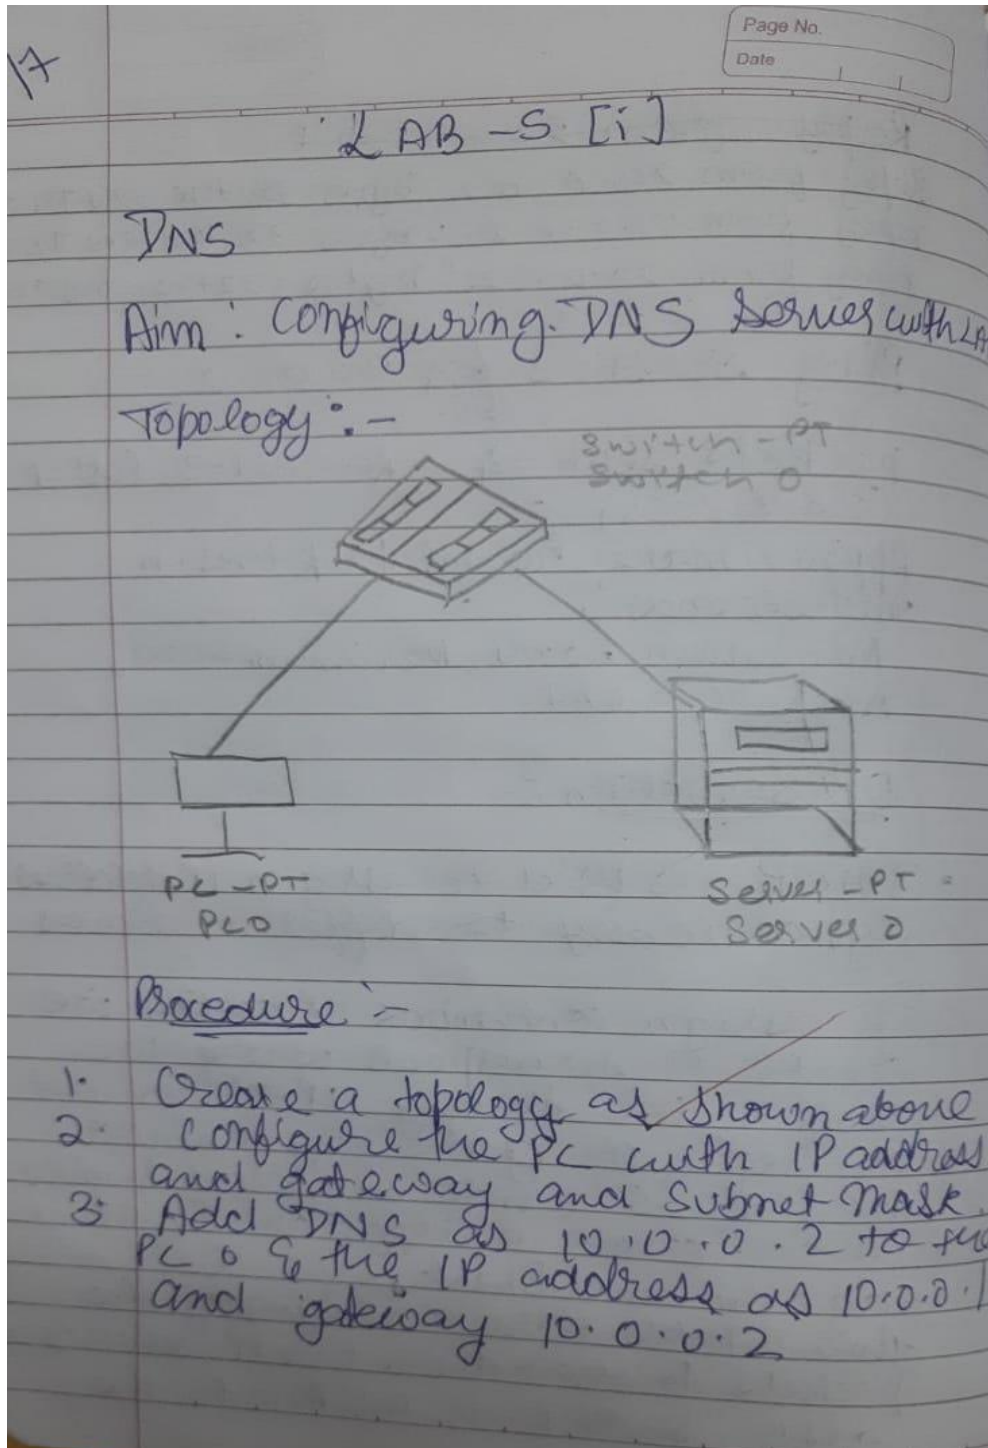 Page No.
Date
17
LAB-5 [i]
DNS
Aim : Configuring DNS Server with LA
Topology :-
Switch-PT
Switch 0
PC-PT
PC0
Server-PT
Server 0
Procedure :-
1. Create a topology as shown above
2. Configure the PC with IP address
and gateway and subnet mask.
3. Add DNS as 10.0.0.2 to the
PC 0 & the IP address as 10.0.0.1
and gateway 10.0.0.2